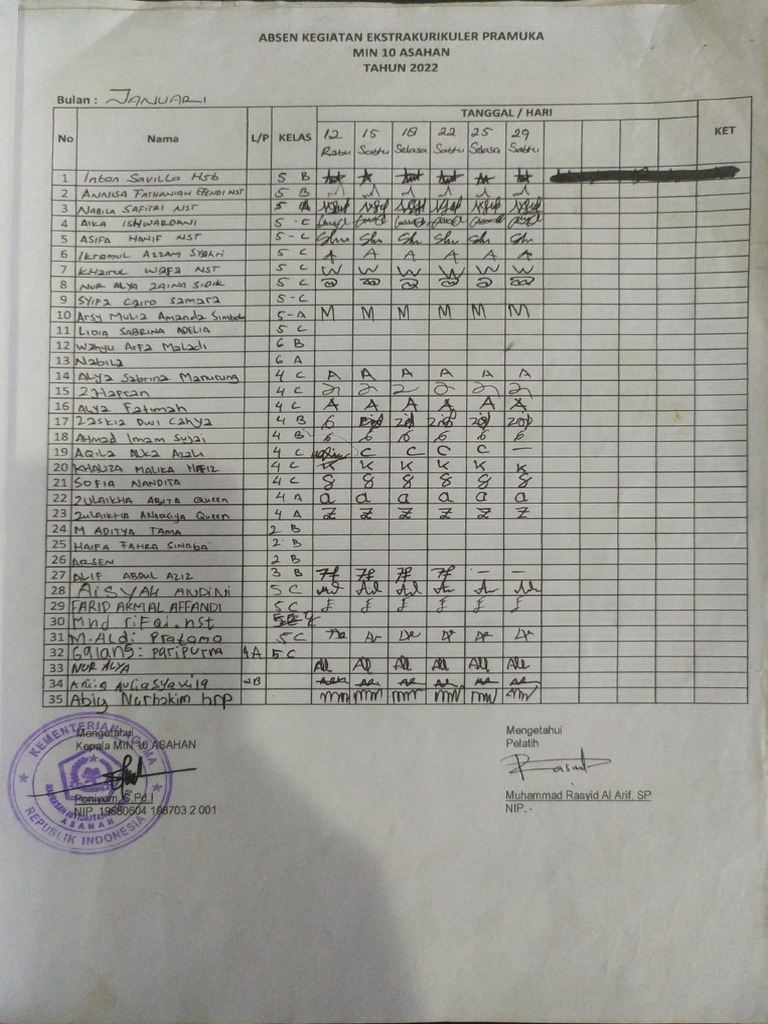 ABSEN KEGIATAN EKSTRAKURIKULER PRAMUKA
MIN 10 ASAHAN
TAHUN 2022
Bulan : JANUARI
No Nama L/P KELAS TANGGAL / HARI KET
12 15 18 22 25 29
Rabu Sabtu Selasa Sabtu Selasa Sabtu
1 Intan Savilla Hsb 5 B
2 ANNISA FATHANIAH EFENDI NST 5 B
3 NABILA SAFITRI NST 5 A
4 AIKA ISHWARDANI 5 - C
5 ASIFA HANIF NST 5 - C Shu Shu Shu Shu Shu Shu
6 Ikramul AZZAM Syahri 5 C A A A A A A
7 KHAIRUL WAFA NST 5 C W W W W W W
8 NUR ALYA ZAINA SIDIK 5 C
9 SYIFA CAIRO SAMARA 5 - C
10 ARSY MULIA AMANDA 5 - A M M M M M M
11 LIDIA SABRINA ADELIA 5 C
12 WAHYU ARFA MALADI 6 B
13 NABILA 6 A
14 ALYA SABRINA Manurung 4 C A A A A A A
15 ZHAFRAN 4 C
16 ALYA FATIMAH 4 C A A A A A A
17 ZASKIA DWI CAHYA 4 B
18 AHMAD IMAM 4 B 6 6 6 6 6 6
19 AQILA ALKA 4 C C C C C –
20 KHALIZA MALIKA HAFIZ 4 C K K K K K K
21 SOFIA NANDITA 4 C 8 8 8 8 8 8
22 ZULAIKHA ABITA Queen 4 A a a a a a a
23 ZULAIKHA ANTAGYA Queen 4 A Z Z Z Z Z Z
24 M ADITYA TAMA 2 B
25 HAIFA FAHRA SINAGA 2 B
26 ARSEN 2 B
27 ALIF ABDUL AZIZ 3 B – –
28 AISYAH ANDINI 5 C
29 FARID AKMAL AFFANDI 5 C £ £ £ £ £ £
30 Mhd rifqi.nst
31 M.Aldi Pratama 5 C
32 Galang: Paripurna 4A 5 C
33 NUR ALYA All All All All All All
34 2B
35 Abiy Nurhakim hrp
Mengetahui
Kepala MIN 10 ASAHAN
Poniyem, S.Pd.I
NIP. 19680604 198703 2 001
Mengetahui
Pelatih
Muhammad Rasyid Al Arif, SP
NIP. -
KEMENTERIAN AGAMA
ASAHAN
REPUBLIK INDONESIA